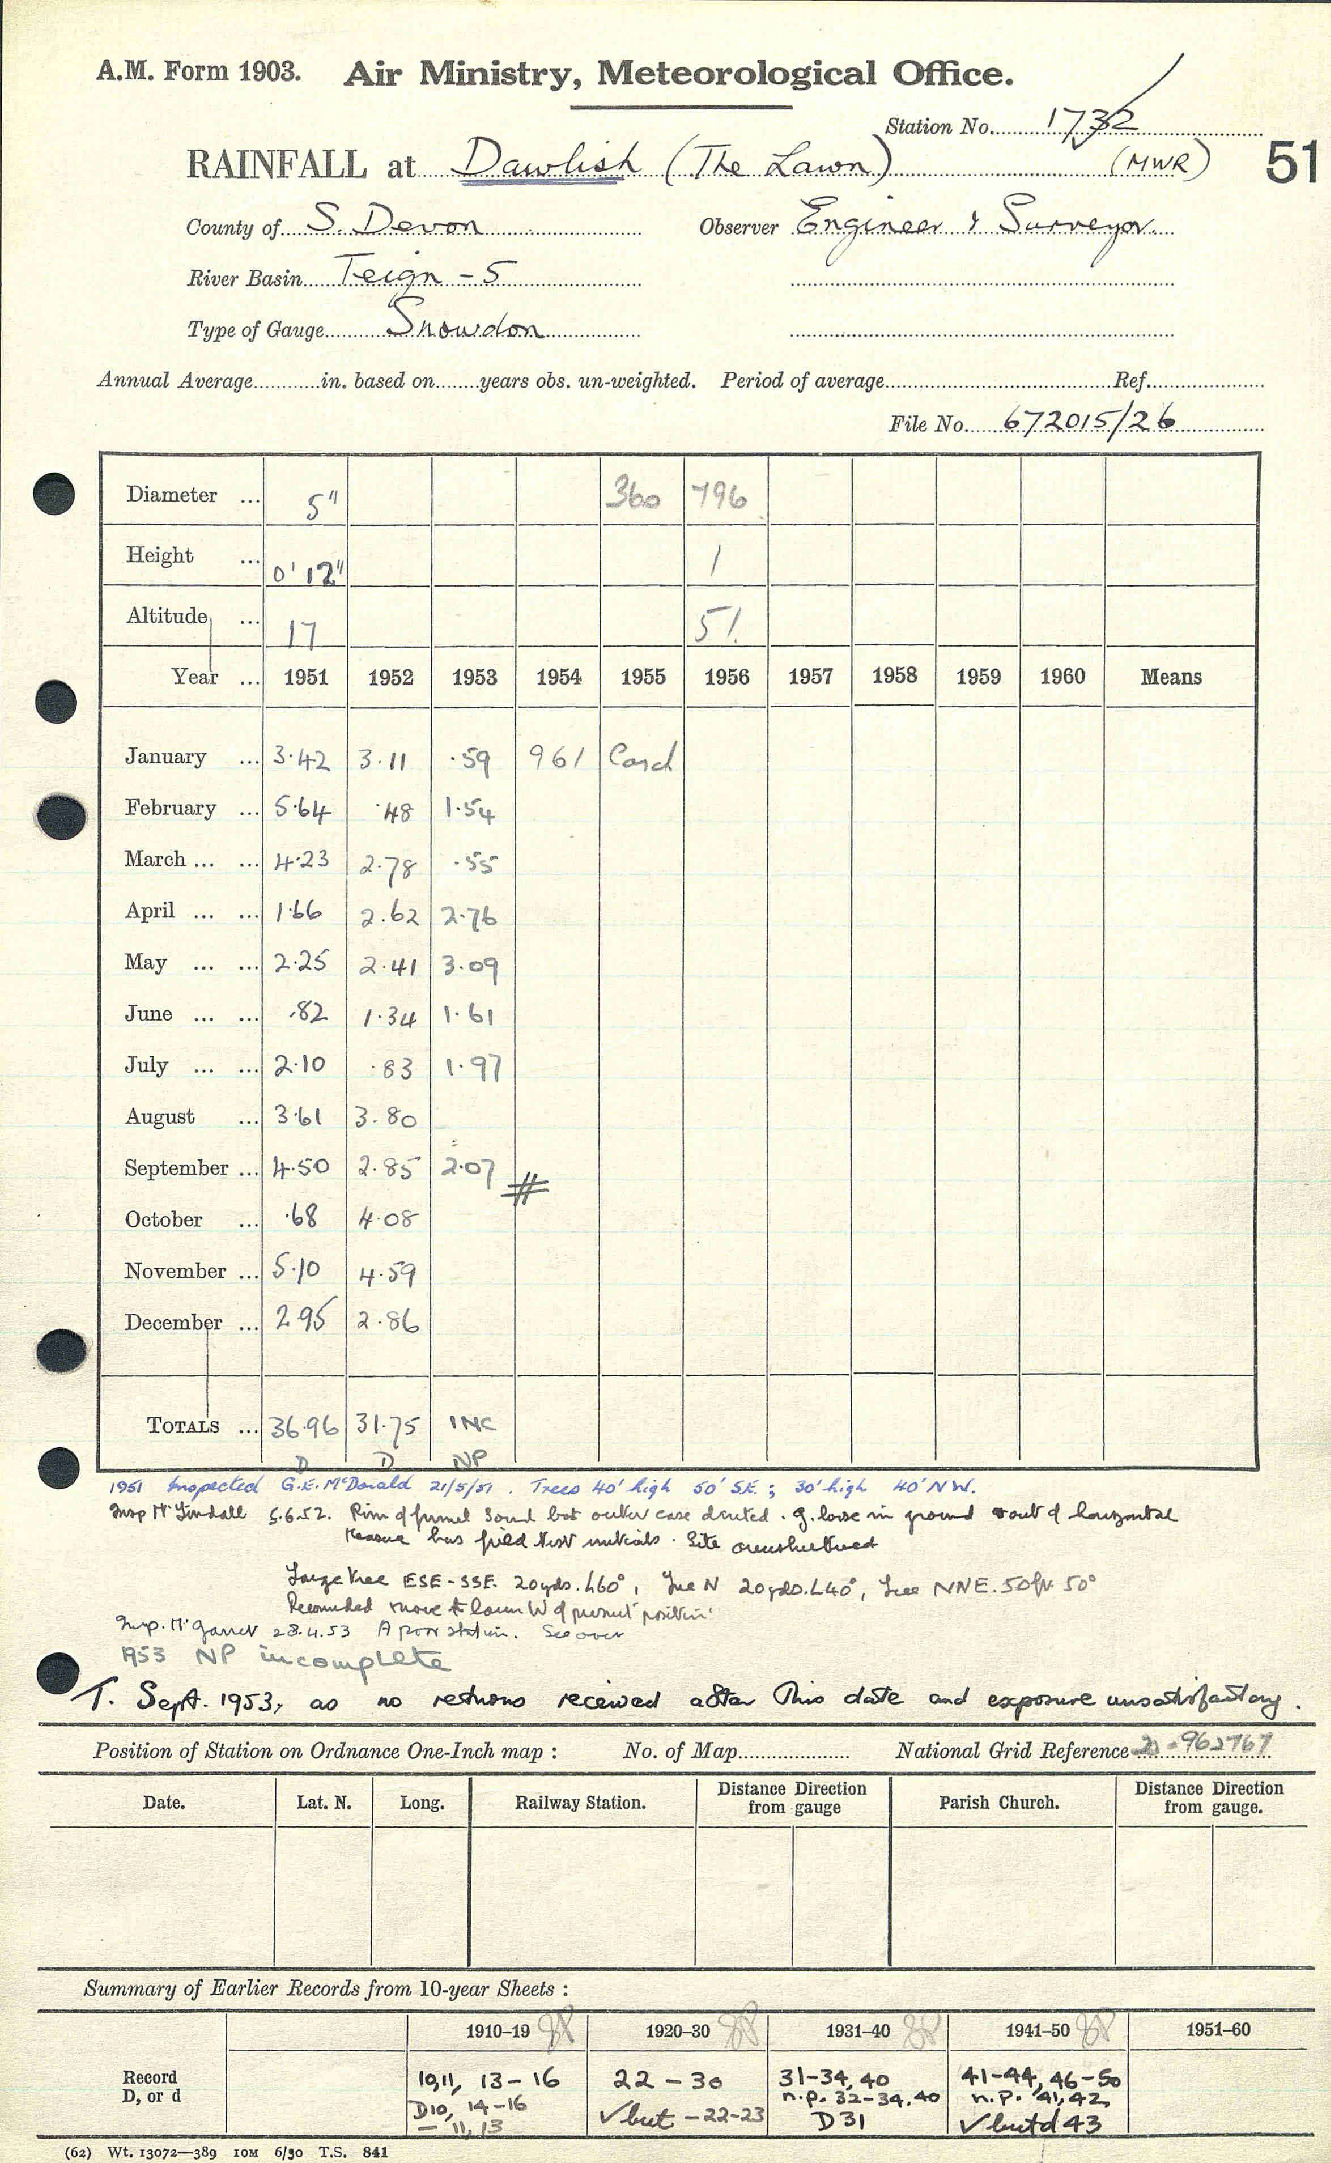 A.M. Form 1903. Air Ministry, Meteorological Office.
Station No. 1732
RAINFALL at Dawlish (The Lawn) (MWR) 51
County of S. Devon Observer Engineer & Surveyor
River Basin Teign - 5
Type of Gauge Snowdon
Annual Average in. based on years obs. un-weighted. Period of average Ref.
File No. 672015/26
Diameter ... 5" 360 796
Height ... 0' 12" 1
Altitude ... 17 51.
Year ... 1951 1952 1953 1954 1955 1956 1957 1958 1959 1960 Means
January ... 3.42 3.11 .59 961 Card
February ... 5.64 .48 1.54
March ... ... 4.23 2.78 .55
April ... ... 1.66 2.62 2.76
May ... ... 2.25 2.41 3.09
June ... ... .82 1.34 1.61
July ... ... 2.10 .83 1.97
August ... 3.61 3.80
September ... 4.50 2.85 2.07 #
October ... .68 4.08
November ... 5.10 4.59
December ... 2.95 2.86
TOTALS ... 36.96 31.75 INC
D D NP
1951 Inspected G.E. McDonald 21/5/51. Trees 40' high 50' S.E.; 30' high 40' NW.
Insp Mr Tindall 5.6.52. Rim of funnel sound but outer case dented. G. loose in ground & out of horizontal
Measure has filed test initials. Site oversheltered
Large tree ESE-SSE. 20yds. L60°, Tree N 20yds. L40°, Tree NNE. 50ft 50°
Recommended move to lawn W of present position
Insp. Mr 28.4.53 A poor station. See over
1953 NP incomplete
T. Sept. 1953, as no returns received after this date and exposure unsatisfactory.
Position of Station on Ordnance One-Inch map : No. of Map National Grid Reference 21-962767
Date. Lat. N. Long. Railway Station. Distance Direction from gauge Parish Church. Distance Direction from gauge.
Summary of Earlier Records from 10-year Sheets :
1910–19 1920–30 1931–40 1941–50 1951–60
Record 10,11, 13-16 22-30 31-34, 40 41-44, 46-50
D, or d D10, 14-16 √ but - 22-23 n.p. 32-34.40 n.p. '41, 42,
- 11, 13 D31 √ but d 43
(62) Wt. 13072—389 10M 6/50 T.S. 841